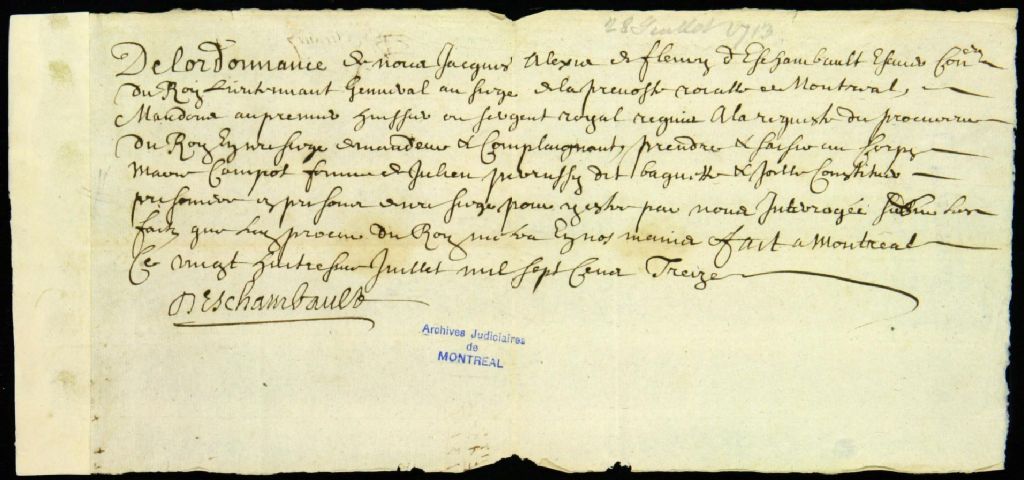 28 Juillet 1713
De lordonnance de nous Jacques Alexis de fleury d'Eschambault Escuier Con.er
Du Roy Lieutennant general au siege de la prevosté royalle de Montreal,
Mandons au premier huissier ou sergent royal requis A la requeste du procureur
Du Roy En nre siege demandeur & Complaignant, prendre & saisir au corps
Marie Campot femme de Julien perrussy dit baguette & Icelle Constituer
prisoniere es prisons de nre siege pour y estre par nous Interrogée sur les
faits que led procur Du Roy mettra En nos mains fait a Montreal
Ce vingt huitiesme Juillet mil sept Cens Treize
DEschambault
Archives Judiciaires
de
MONTREAL